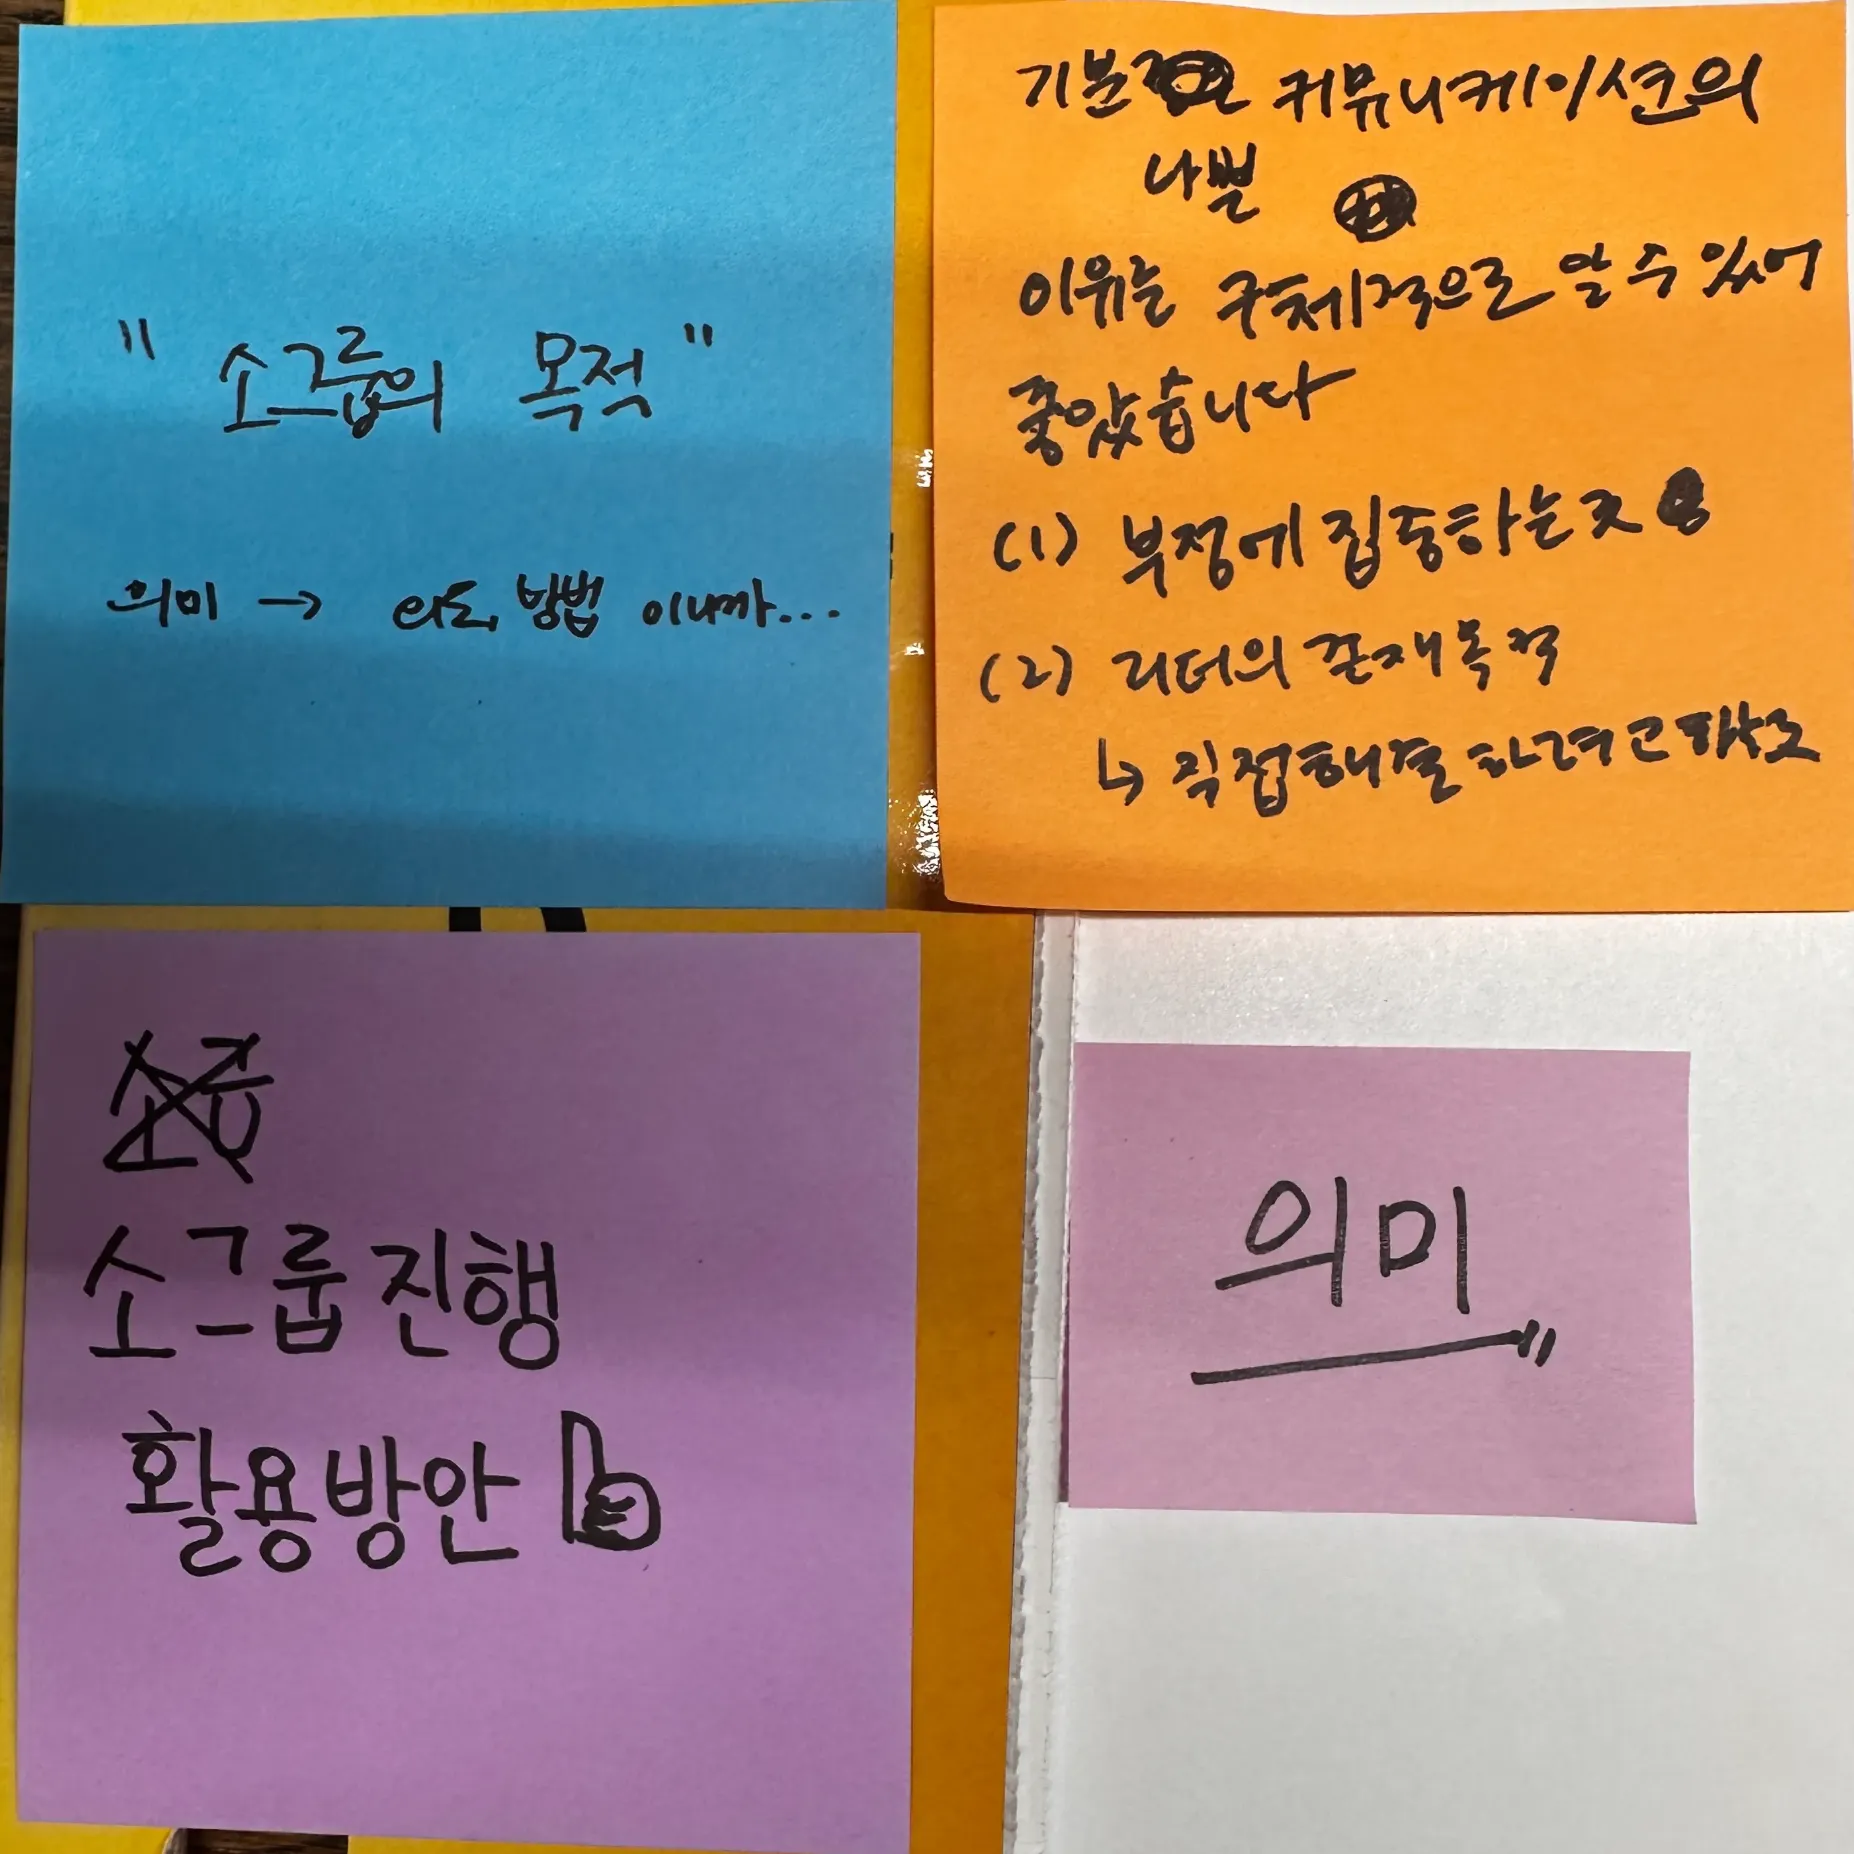 " 소그룹의 목적 "
의미 → 의도, 방법 이니까...
기분 커뮤니케이션의
나쁠
이유는 구체적으로 알 수 있어
좋았습니다
(1) 부정에 집중하는
(2) 리더의 존재목적
↳ 직접해결하려고
소그룹진행
활용방안
의미"